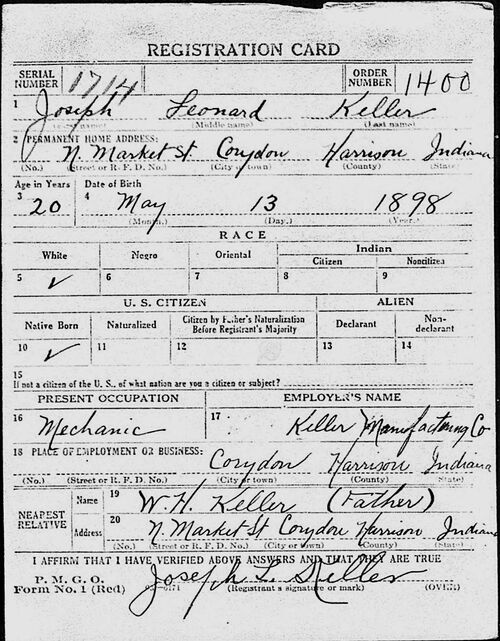 REGISTRATION CARD
SERIAL NUMBER 1714 ORDER NUMBER 1400
1 Joseph Leonard Keller
(First name) (Middle name) (Last name)
2 PERMANENT HOME ADDRESS:
N. Market St. Corydon Harrison Indiana
(No.) (Street or R. F. D. No.) (City or town) (County) (State)
Age in Years Date of Birth
3 20 4 May 13 1898
(Month.) (Day.) (Year.)
RACE
White Negro Oriental Indian
Citizen Noncitizen
5 ✓ 6 7 8 9
U. S. CITIZEN ALIEN
Native Born Naturalized Citizen by Father's Naturalization Before Registrant's Majority Declarant Non-declarant
10 ✓ 11 12 13 14
15
If not a citizen of the U. S., of what nation are you a citizen or subject?
PRESENT OCCUPATION EMPLOYER'S NAME
16 Mechanic 17 Keller Manufacturing Co
18 PLACE OF EMPLOYMENT OR BUSINESS:
Corydon Harrison Indiana
(No.) (Street or R. F. D. No.) (City or town) (County) (State)
NEAREST RELATIVE Name 19 W. H. Keller (Father)
Address 20 N Market St Corydon Harrison Indiana
(No.) (Street or R. F. D. No.) (City or town) (County) (State)
I AFFIRM THAT I HAVE VERIFIED ABOVE ANSWERS AND THAT THEY ARE TRUE
P. M. G. O.
Form No. 1 (Red) Joseph L. Keller
(Registrant's signature or mark) (OVER)